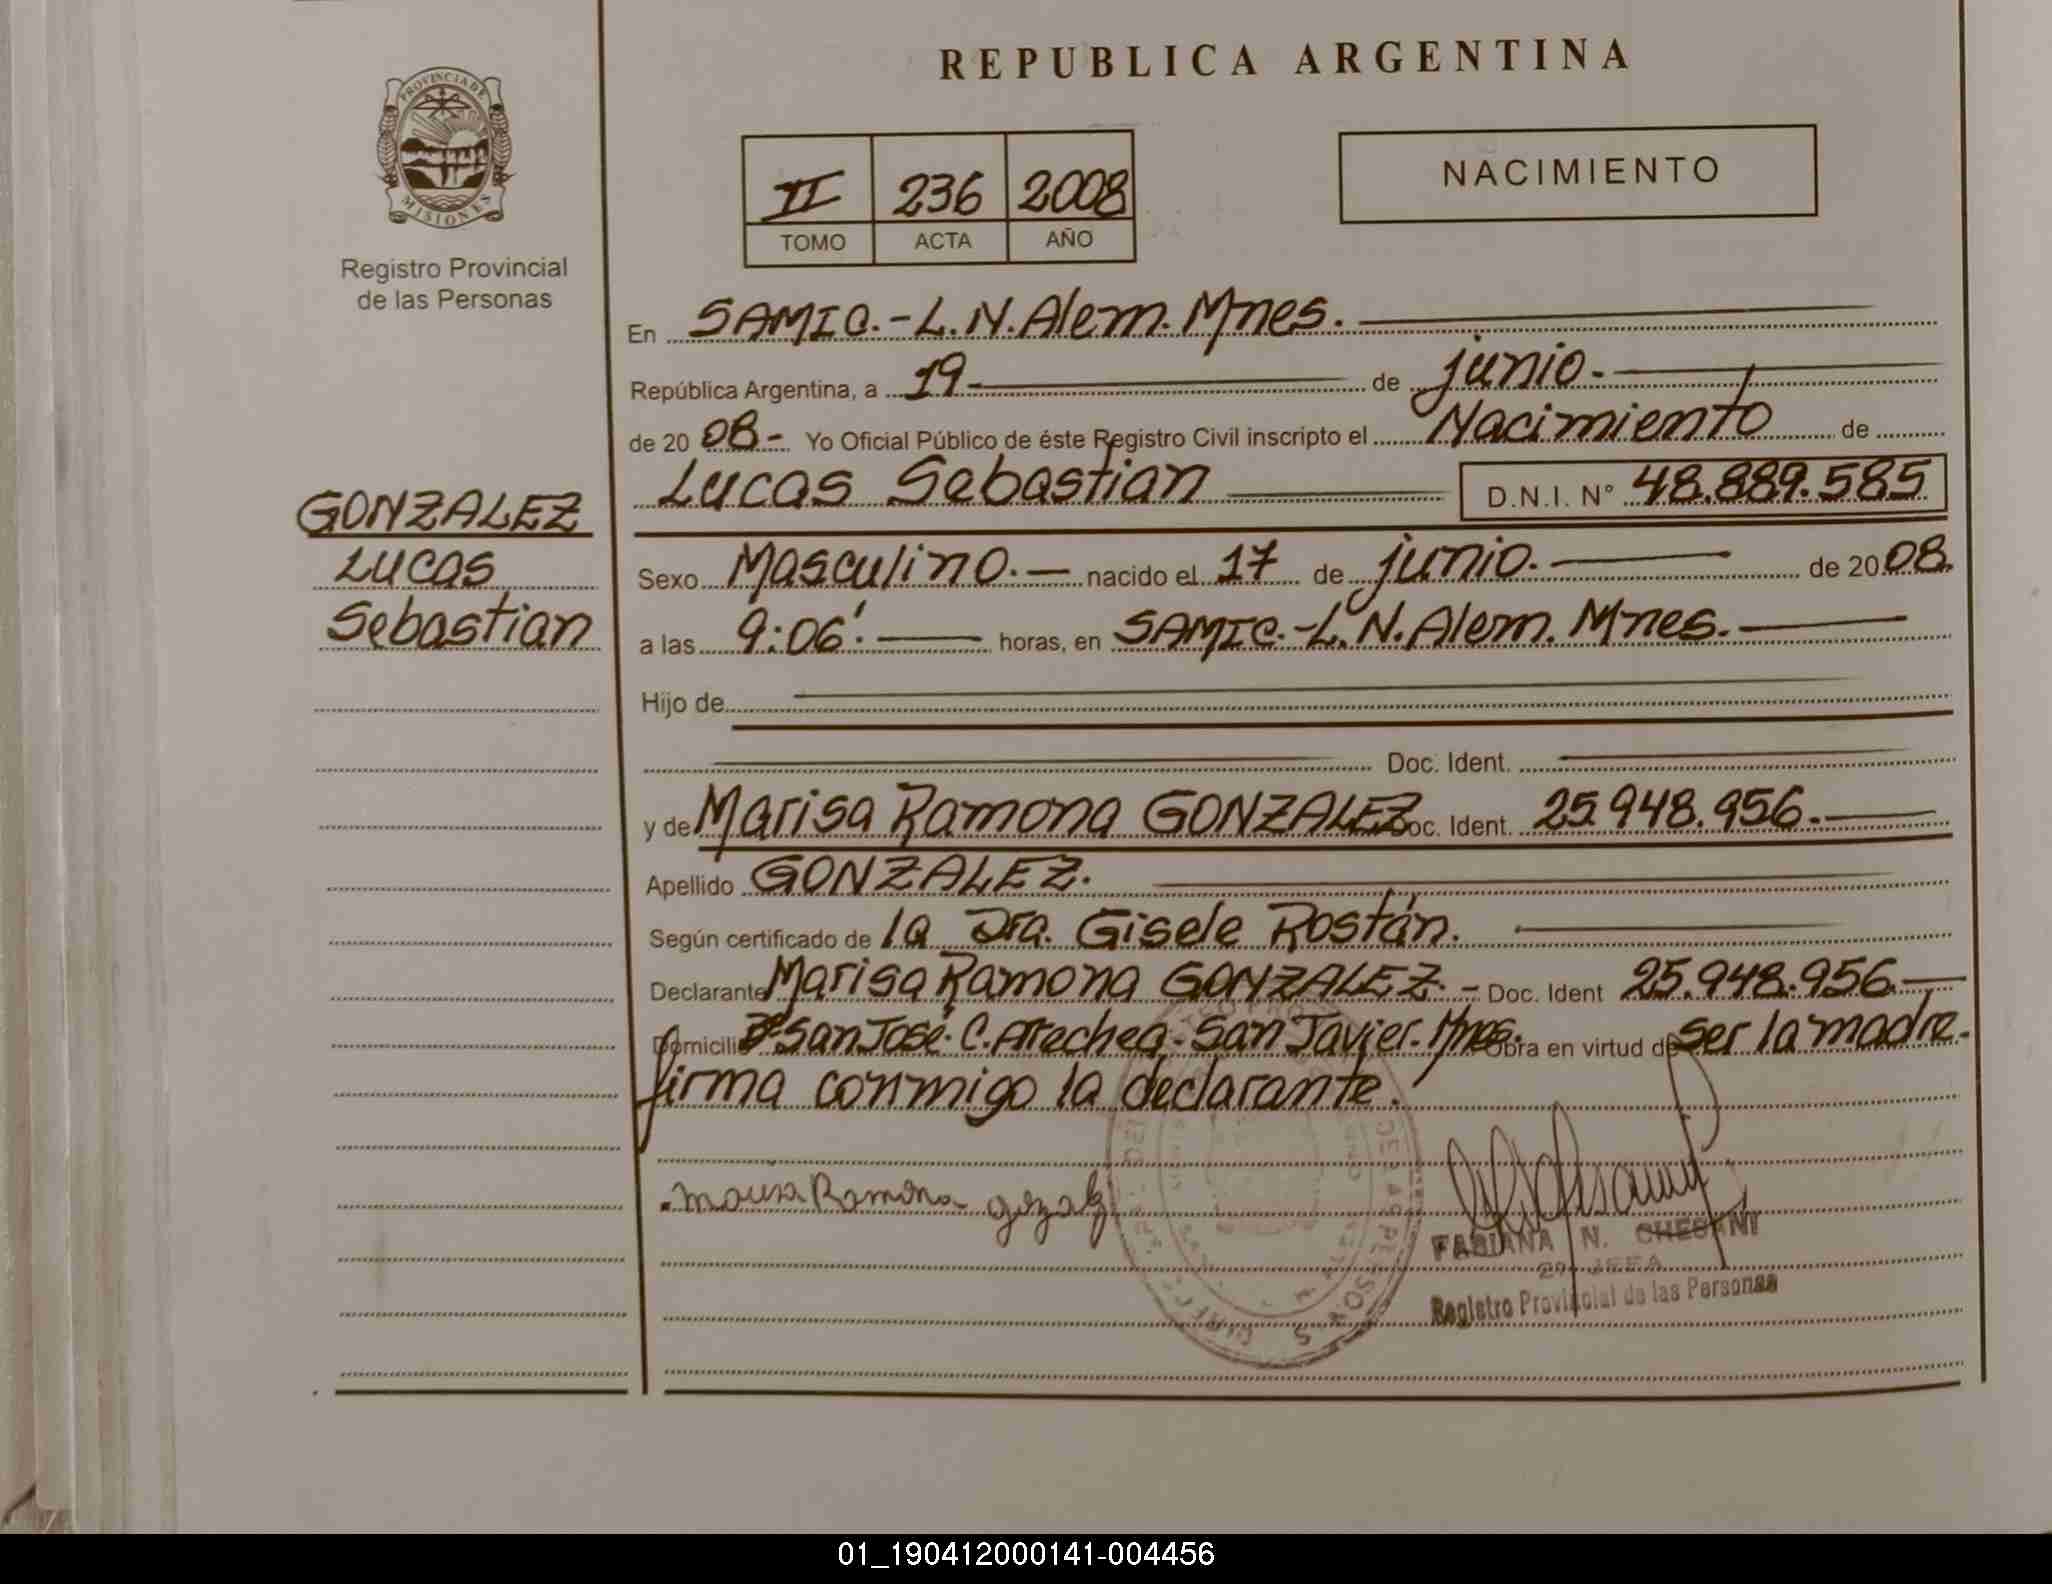 REPUBLICA ARGENTINA
PROVINCIA DE
MISIONES
Registro Provincial
de las Personas
II 236 2008
TOMO ACTA AÑO
NACIMIENTO
En SAMIC.-L.N.Alem.Mnes.
República Argentina, a 19 de junio.
de 20 08 Yo Oficial Público de éste Registro Civil inscripto el Nacimiento de
Lucas Sebastian D.N.I. N° 48.889.585
GONZALEZ
LUCAS
Sebastian
Sexo Masculino. nacido el 17 de junio. de 20 08.
a las 9:06' horas, en SAMIC.-L.N.Alem.Mnes.
Hijo de
Doc. Ident.
y de Marisa Ramona GONZALEZ Doc. Ident. 25.948.956.
Apellido GONZALEZ.
Según certificado de la Dra. Gisele Rostán.
Declarante Marisa Ramona GONZALEZ.- Doc. Ident 25.948.956
Domicilio San José. C. Arechea. San Javier. Mnes. Obra en virtud de ser la madre.
firma conmigo la declarante.
FABIANA N. CHESANI
2º JEFA
Registro Provincial de las Personas
01_190412000141-004456